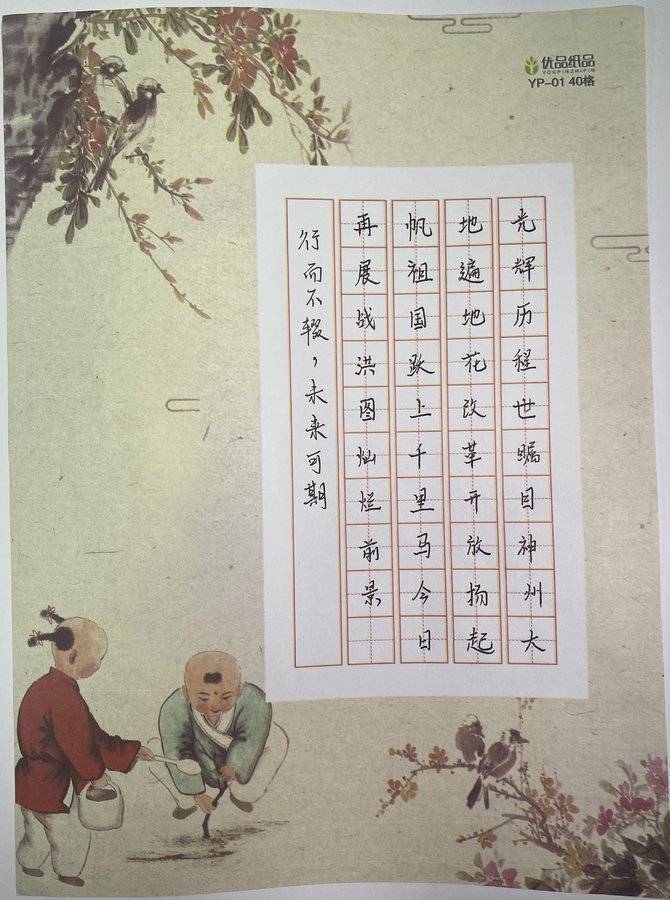 优品纸品
YOUPINZHIPIN
YP-01 40格
光辉历程世瞩目神州大
地遍地花改革开放扬起
帆祖国跃上千里马今日
再展战洪图灿烂前景
行而不辍，未来可期